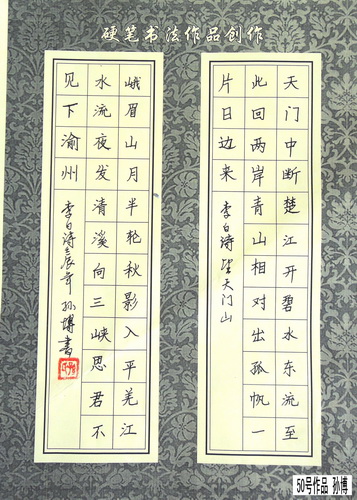 硬笔书法作品创作
天门中断楚江开碧水东流至
此回两岸青山相对出孤帆一
片日边来 李白诗望天门山
峨眉山月半轮秋影入平羌江
水流夜发清溪向三峡思君不
见下渝州 李白诗壬辰年孙博书
50号作品 孙博